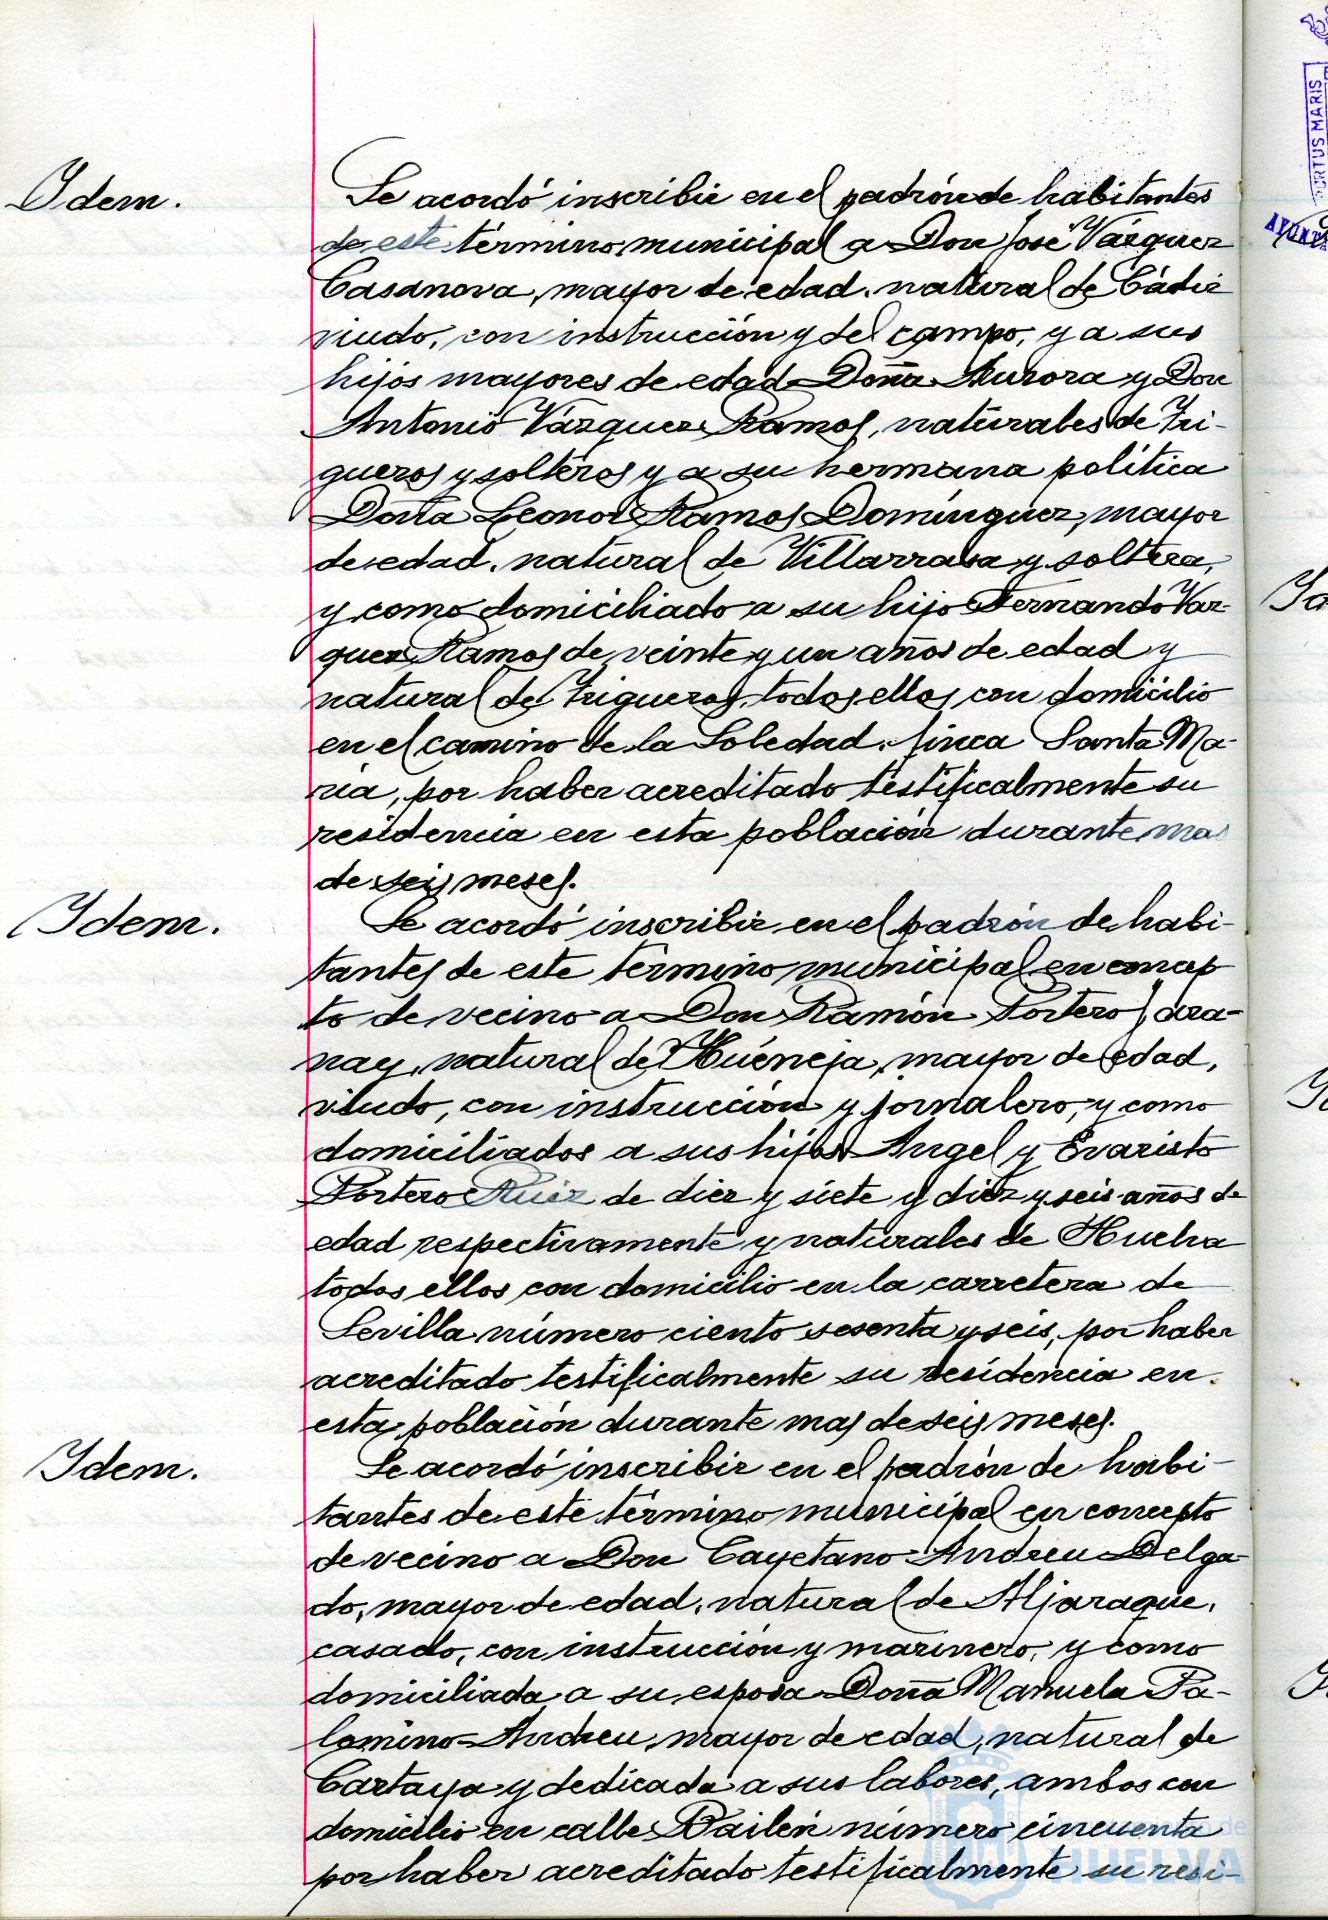 Idem.
Se acordó inscribir en el padrón de habitantes
de este término municipal a Don José Vázquez
Casanova, mayor de edad, natural de Cádiz
viudo, con instrucción y del campo, y a sus
hijos mayores de edad Doña Aurora y Don
Antonio Vázquez Ramos, naturales de Tri-
gueros y solteros y a su hermana política
Doña Leonor Ramos Domínguez, mayor
de edad, natural de Villarrasa y soltera,
y como domiciliado a su hijo Fernando Váz-
quez Ramos de veinte y un años de edad y
natural de Trigueros, todos ellos con domicilio
en el camino de la Soledad, finca Santa Ma-
ría, por haber acreditado testificalmente su
residencia en esta población durante mas
de seis meses.
Idem.
Se acordó inscribir en el padrón de habi-
tantes de este término municipal en concep
to de vecino a Don Ramón Portero
nay, natural de Huéneja, mayor de edad,
viudo, con instrucción y jornalero, y como
domiciliados a sus hijos Angel y Evaristo
Portero Ruiz de diez y siete y diez y seis años de
edad respectivamente y naturales de Huelva
todos ellos con domicilio en la carretera de
Sevilla número ciento sesenta y seis, por haber
acreditado testificalmente su residencia en
esta población durante mas de seis meses.
Idem.
Se acordó inscribir en el padrón de habi-
tantes de este término municipal en concepto
de vecino a Don Cayetano Andreu Delga-
do, mayor de edad, natural de Aljaraque,
casado, con instrucción y marinero, y como
domiciliada a su esposa Doña Manuela Pa-
lomino Andreu, mayor de edad, natural de
Cartaya y dedicada a sus labores, ambos con
domicilio en calle Bailén número cincuenta
por haber acreditado testificalmente su resi-
PORTUS MARIS
HUELVA